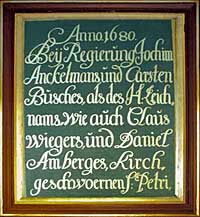 Anno.1680.
Bey Regierung Jochim
Anckelmans und Carsten
Büsches, als des H. Leich,
nams, wie auch Claus
Wiegers, und Daniel
Amberges, Kirch,
geschwoernen S. Petri.